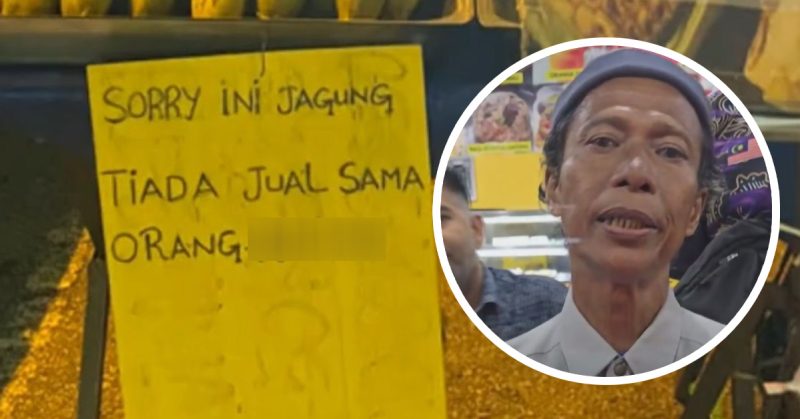 SORRY INI JAGUNG
TIADA JUAL SAMA
ORANG